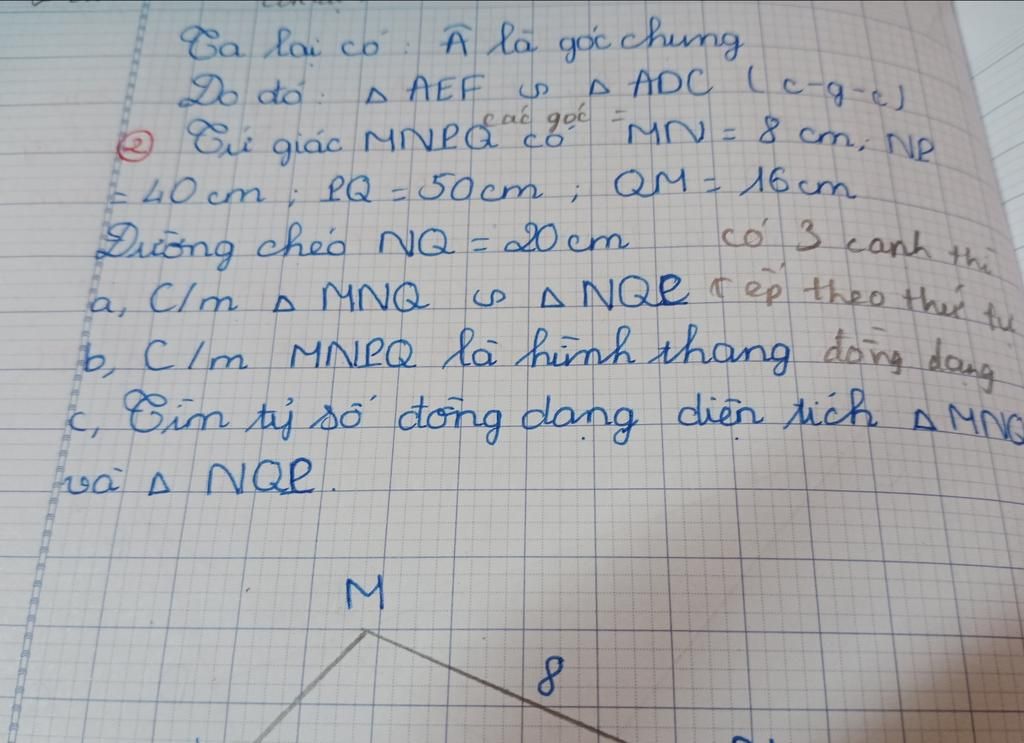 Ta lại có: Â là góc chung
Do đó: Δ AEF ∽ Δ ADC (c-g-c)
các góc =
② Tứ giác MNPQ có MN = 8 cm; NP
= 40 cm; PQ = 50cm; QM = 16cm
Đường chéo NQ = 20cm có 3 cạnh thì
a, C/m Δ MNQ ∽ Δ NQP xếp theo thứ tự
b, C/m MNPQ là hình thang đồng dạng
c, Tìm tỷ số đồng dạng diện tích Δ MNQ
và Δ NQP.
M
8